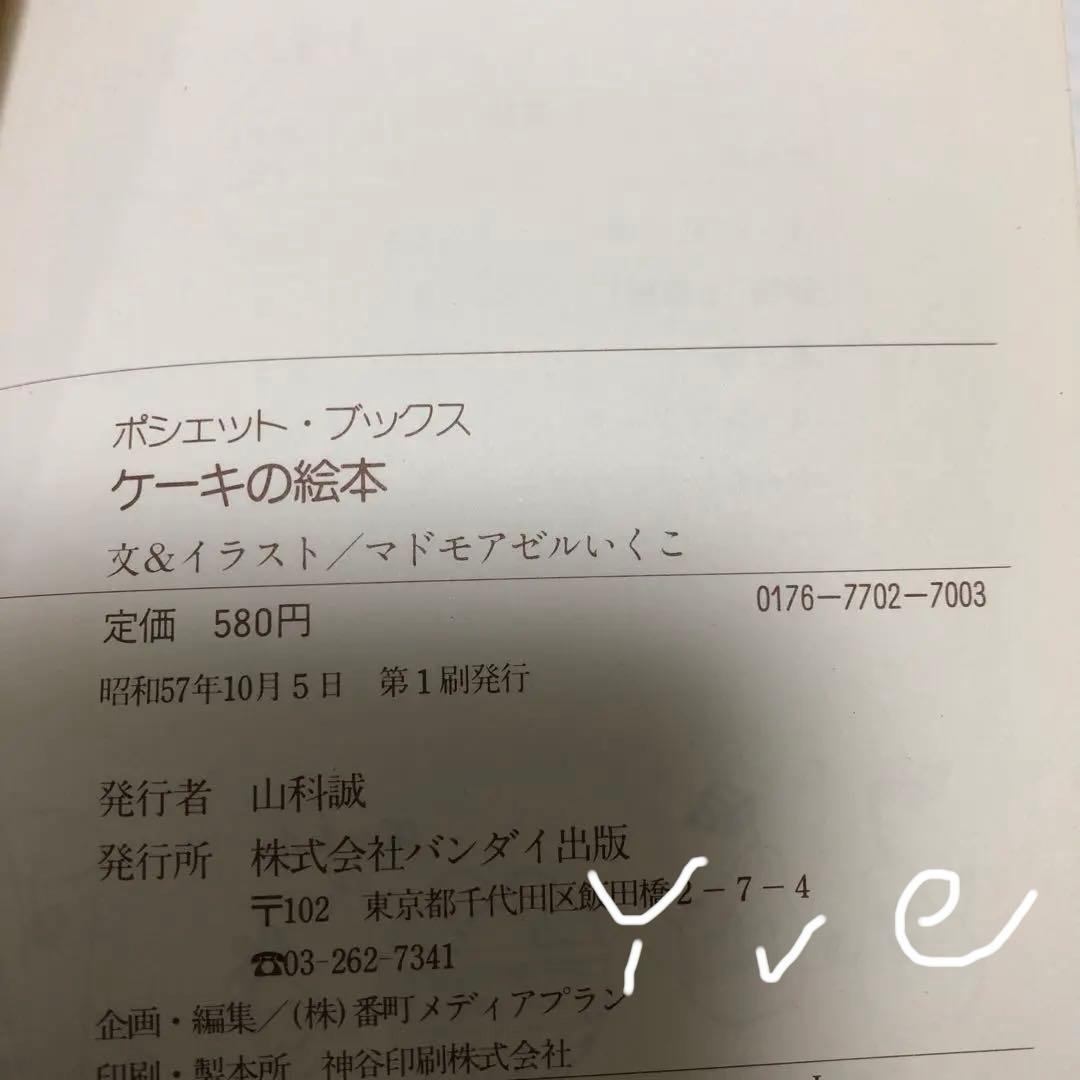 ポシェット・ブックス
ケーキの絵本
文&イラスト/マドモアゼルいくこ
定価 580円 0176-7702-7003
昭和57年10月5日 第1刷発行
発行者 山科誠
発行所 株式会社バンダイ出版
〒102 東京都千代田区飯田橋2-7-4
☎03-262-7341
企画・編集/(株)番町メディアプラン
印刷・製本所 神谷印刷株式会社
Yve